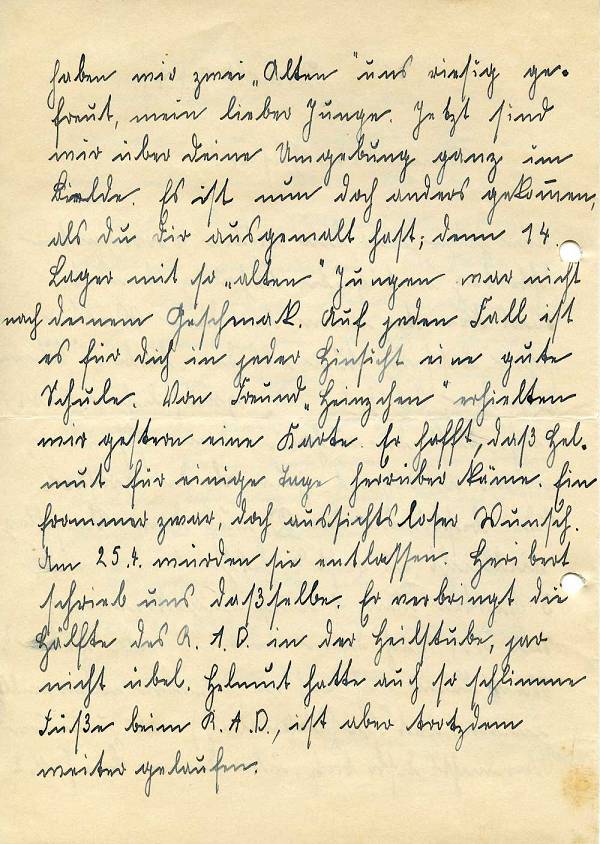 haben wir zwei „Alten" uns riesig ge-
freut, mein lieber Junge. Jetzt sind
wir über deine Umgebung ganz im
Bielde. Es ist nun doch anders gekom̅en,
als du dir ausgemalt hast; denn 14.
Lager mit so „alten" Jungen war nicht
nach deinem Geschmak. Auf jeden Fall ist
es für dich in jeder Hinsicht eine gute
Schule. Von Freund „Heinzchen" erhielten
wir gestern eine Karte. Er hofft, daß Hel-
mut für einige Tage herrüber käme. Ein
frommer zwar, doch aussichtsloser Wunsch.
Am 25.4. wurden sie entlassen. Heribert
schrieb uns daßselbe. Er verbringt die
Hälfte des R.A.D. in der Heilstube, gar
nicht übel. Helmut hatte auch so schlimme
Füße beim R.A.D., ist aber trotzdem
weiter gelaufen.